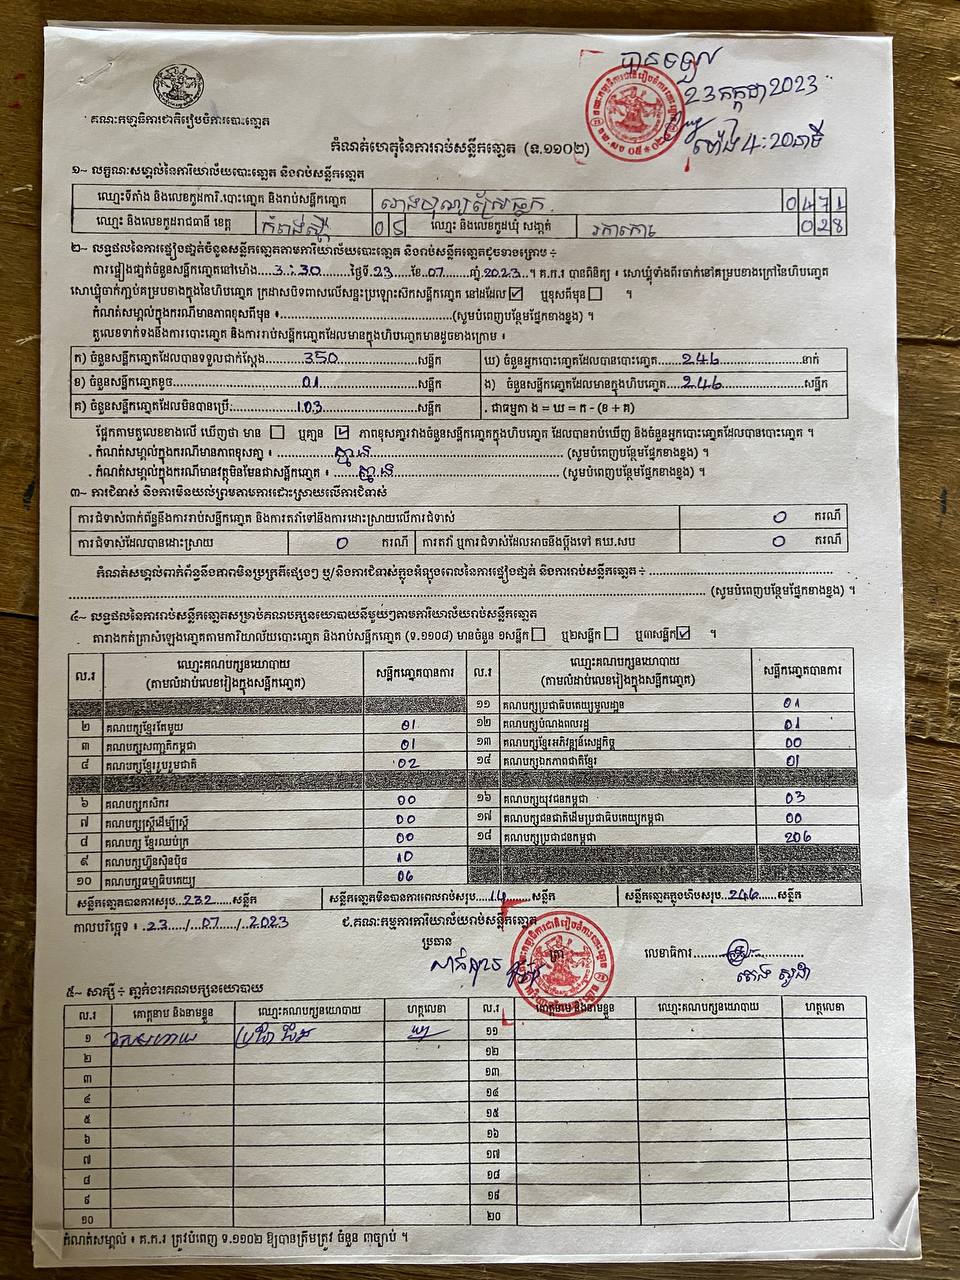 បានទទួល
23 កក្កដា 2023
ម៉ោង 4:20នាទី
គណៈកម្មាធិការជាតិរៀបចំការបោះឆ្នោត
កំណត់ហេតុនៃការរាប់សន្លឹកឆ្នោត (ទ.១១០២)
១~ លក្ខណៈសម្គាល់នៃការិយាល័យបោះឆ្នោត និងរាប់សន្លឹកឆ្នោត
ឈ្មោះទីតាំង និងលេខកូដការិ.បោះឆ្នោត និងរាប់សន្លឹកឆ្នោត 0471
ឈ្មោះ និងលេខកូដរាជធានី ខេត្ត កំពង់ស្ពឺ 05 ឈ្មោះ និងលេខកូដឃុំ សង្កាត់ រកាកោះ 028
២~ លទ្ធផលនៃការផ្ទៀងផ្ទាត់ចំនួនសន្លឹកឆ្នោតតាមការិយាល័យបោះឆ្នោត និងរាប់សន្លឹកឆ្នោតដូចខាងក្រោម ÷
ការផ្ទៀងផ្ទាត់ចំនួនសន្លឹកឆ្នោតនៅម៉ោង 3:30 ថ្ងៃទី 23 ខែ 07 ឆ្នាំ 2023 ។ គ.ក.រ បានពិនិត្យ ៖ សោឃ្លុំទាំងពីរចាក់នៅគម្របខាងក្រៅនៃហិបឆ្នោត
សោឃ្លុំចាក់ភ្ជាប់គម្របខាងក្នុងនៃហិបឆ្នោត ក្រដាសបិទពាសលើសន្ទះប្រឡោះស៊កសន្លឹកឆ្នោត នៅដដែល ☑ ឬខុសពីមុន ☐ ។
កំណត់សម្គាល់ក្នុងករណីមានភាពខុសពីមុន ៖ (សូមបំពេញបន្ថែមផ្នែកខាងខ្នង) ។
តួលេខទាក់ទងនឹងការបោះឆ្នោត និងការរាប់សន្លឹកឆ្នោតដែលមានក្នុងហិបឆ្នោតមានដូចខាងក្រោម ៖
ក) ចំនួនសន្លឹកឆ្នោតដែលបានទទួលជាក់ស្តែង 350 សន្លឹក ឃ) ចំនួនអ្នកបោះឆ្នោតដែលបានបោះឆ្នោត 246 នាក់
ខ) ចំនួនសន្លឹកឆ្នោតខូច 01 សន្លឹក ង) ចំនួនសន្លឹកឆ្នោតដែលមានក្នុងហិបឆ្នោត 246 សន្លឹក
គ) ចំនួនសន្លឹកឆ្នោតដែលមិនបានប្រើ 103 សន្លឹក . ជាធម្មតា ង = ឃ = ក - (ខ + គ)
ផ្អែកតាមតួលេខខាងលើ ឃើញថា មាន ☐ ឬគ្មាន ☑ ភាពខុសគ្នារវាងចំនួនសន្លឹកឆ្នោតក្នុងហិបឆ្នោត ដែលបានរាប់ឃើញ និងចំនួនអ្នកបោះឆ្នោតដែលបានបោះឆ្នោត ។
. កំណត់សម្គាល់ក្នុងករណីមានភាពខុសគ្នា ៖ គ្មាន (សូមបំពេញបន្ថែមផ្នែកខាងខ្នង) ។
. កំណត់សម្គាល់ក្នុងករណីមានវត្ថុមិនមែនជាសន្លឹកឆ្នោត ៖ គ្មាន (សូមបំពេញបន្ថែមផ្នែកខាងខ្នង) ។
៣~ ការជំទាស់ និងការមិនយល់ព្រមតាមការដោះស្រាយលើការជំទាស់
ការជំទាស់ពាក់ព័ន្ធនឹងការរាប់សន្លឹកឆ្នោត និងការតវ៉ាទៅនឹងការដោះស្រាយលើការជំទាស់ 0 ករណី
ការជំទាស់ដែលបានដោះស្រាយ 0 ករណី ការតវ៉ា ឬការជំទាស់ដែលអាចនឹងប្តឹងទៅ គឃ.សប 0 ករណី
កំណត់សម្គាល់ពាក់ព័ន្ធនឹងភាពមិនប្រក្រតីផ្សេងៗ ឬ/និងការជំទាស់ក្នុងអំឡុងពេលនៃការផ្ទៀងផ្ទាត់ និងការរាប់សន្លឹកឆ្នោត ÷
(សូមបំពេញបន្ថែមផ្នែកខាងខ្នង) ។
៤~ លទ្ធផលនៃការរាប់សន្លឹកឆ្នោតសម្រាប់គណបក្សនយោបាយនីមួយៗតាមការិយាល័យរាប់សន្លឹកឆ្នោត
តារាងកត់ត្រាសំឡេងឆ្នោតតាមការិយាល័យបោះឆ្នោត និងរាប់សន្លឹកឆ្នោត (ទ.១១០៨) មានចំនួន ១សន្លឹក ☐ ឬ២សន្លឹក ☐ ឬ៣សន្លឹក ☑ ។
ល.រ ឈ្មោះគណបក្សនយោបាយ (តាមលំដាប់លេខរៀងក្នុងសន្លឹកឆ្នោត) សន្លឹកឆ្នោតបានការ ល.រ ឈ្មោះគណបក្សនយោបាយ (តាមលំដាប់លេខរៀងក្នុងសន្លឹកឆ្នោត) សន្លឹកឆ្នោតបានការ
១១ គណបក្សប្រជាធិបតេយ្យមូលដ្ឋាន 01
២ គណបក្សខ្មែរតែមួយ 01 ១២ គណបក្សបំណងពលរដ្ឋ 01
៣ គណបក្សសញ្ជាតិកម្ពុជា 01 ១៣ គណបក្សខ្មែរអភិវឌ្ឍន៍សេដ្ឋកិច្ច 00
៤ គណបក្សខ្មែររួបរួមជាតិ 02 ១៤ គណបក្សឯកភាពជាតិខ្មែរ 01
៦ គណបក្សកសិករ 00 ១៦ គណបក្សយុវជនកម្ពុជា 03
៧ គណបក្សស្ត្រីដើម្បីស្ត្រី 00 ១៧ គណបក្សជនជាតិដើមប្រជាធិបតេយ្យកម្ពុជា 00
៨ គណបក្ស ខ្មែរឈប់ក្រ 00 ១៨ គណបក្សប្រជាជនកម្ពុជា 206
៩ គណបក្សហ្វ៊ុនស៊ិនប៉ិច 10
១០ គណបក្សធម្មាធិបតេយ្យ 06
សន្លឹកឆ្នោតបានការសរុប 232 សន្លឹក សន្លឹកឆ្នោតមិនបានការពេលរាប់សរុប 14 សន្លឹក សន្លឹកឆ្នោតក្នុងហិបសរុប 246 សន្លឹក
កាលបរិច្ឆេទ ៖ 23 / 07 / 2023 ជ.គណៈកម្មការការិយាល័យរាប់សន្លឹកឆ្នោត
ប្រធាន លេខាធិការ
៥~ សាក្សី ÷ ភ្នាក់ងារគណបក្សនយោបាយ
ល.រ គោត្តនាម និងនាមខ្លួន ឈ្មោះគណបក្សនយោបាយ ហត្ថលេខា ល.រ គោត្តនាម និងនាមខ្លួន ឈ្មោះគណបក្សនយោបាយ ហត្ថលេខា
១ ១១
២ ១២
៣ ១៣
៤ ១៤
៥ ១៥
៦ ១៦
៧ ១៧
៨ ១៨
៩ ១៩
១០ ២០
កំណត់សម្គាល់ ៖ គ.ក.រ ត្រូវបំពេញ ទ.១១០២ ឱ្យបានត្រឹមត្រូវ ចំនួន ៣ច្បាប់ ។